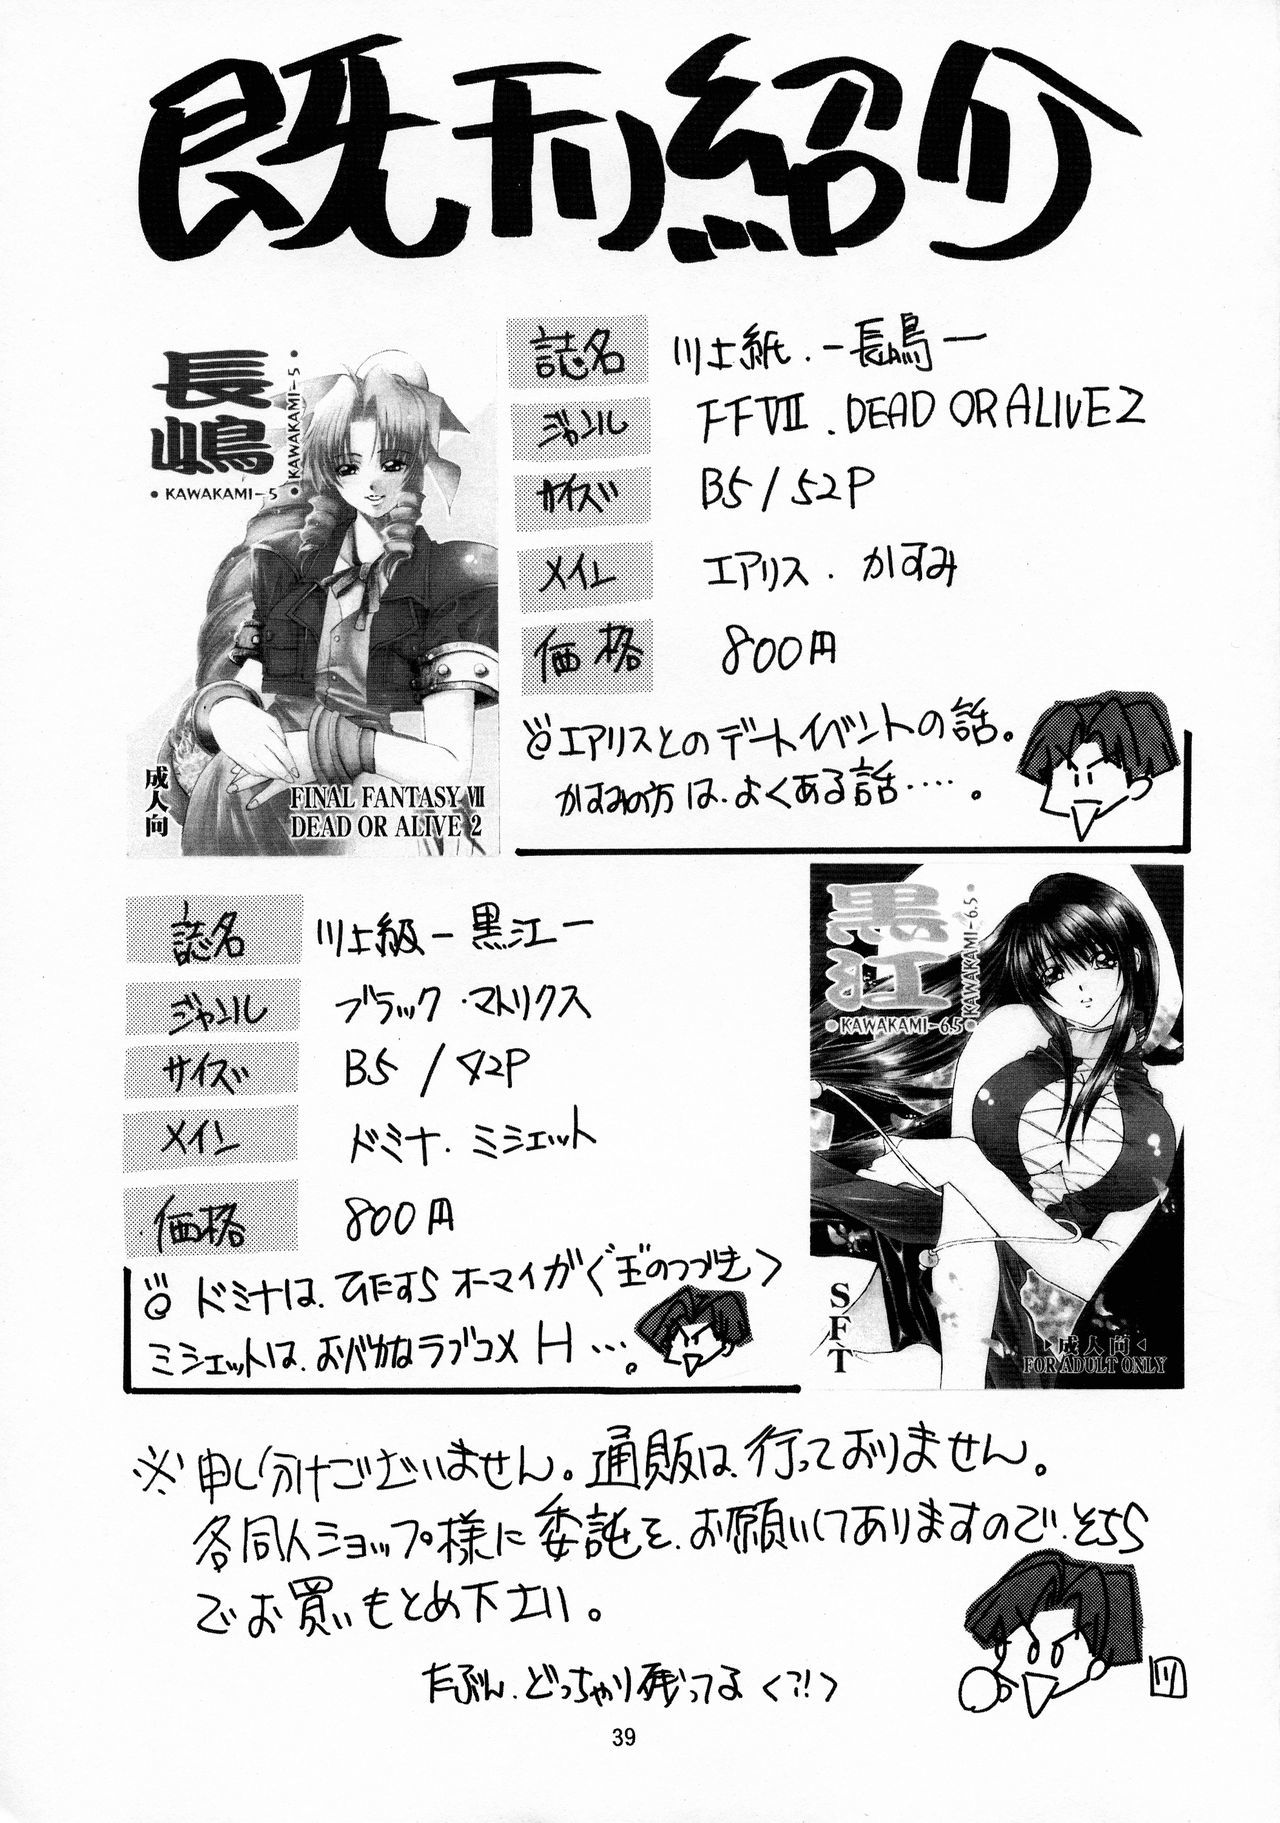 既刊紹介
長嶋
KAWAKAMI-5
KAWAKAMI-5
成人向
FINAL FANTASY VII
DEAD OR ALIVE 2
誌名 川上紙.-長嶋-
ジャンル FFVII.DEAD OR ALIVE2
サイズ B5/52P
メイン エアリス.かすみ
価格 800円
エアリスとのデートイベントの話。
かすみの方は、よくある話‥‥。
誌名 川上級-黒江-
ジャンル ブラック・マトリクス
サイズ B5/42P
メイン ドミナ.ミシェット
価格 800円
ドミナは、ひたすらオーマイがぐ玉のつづき>
ミシェットは、おバカなラブコメH…。
黒江
KAWAKAMI-6.5
KAWAKAMI-6.5
SFT
成人向
FOR ADULT ONLY
※申し分けございません。通販は、行っておりません。
各同人ショップ様に委託を、お願いしてありますので、そちら
でお買いもとめ下さい。
たぶん、どっちゃり残ってるく?!>
川
39